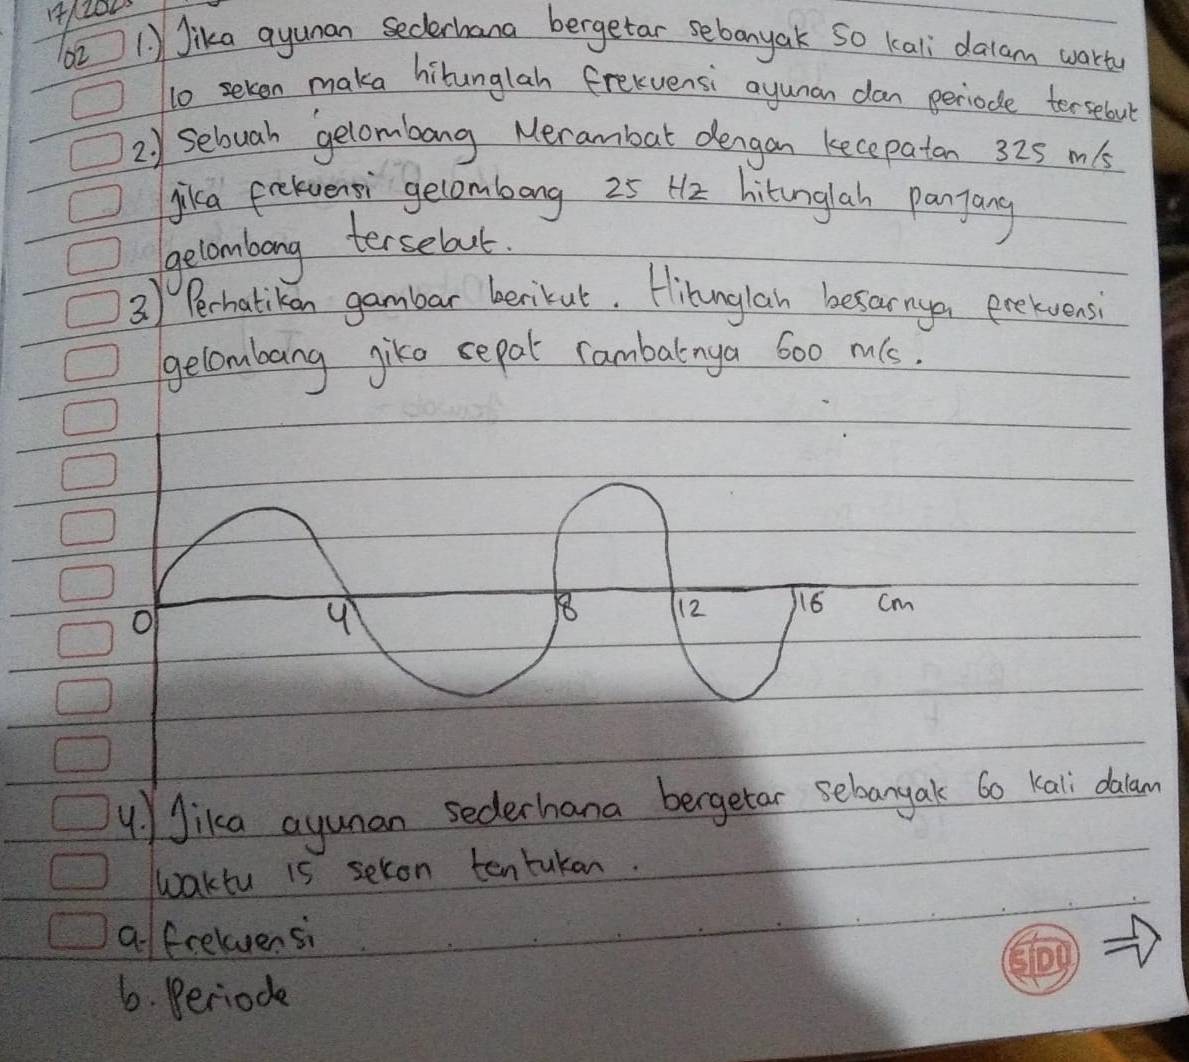 17/202
02 1.) Jika ayunan sederhana bergetar sebanyak 50 kali dalam waktu
10 sekon maka hitunglah frekuensi ayunan dan periode tersebut
2.) Sebuah gelombang Merambat dengan kecepatan 325 m/s
jika frekuensi gelombang 25 Hz hitunglah panjang
gelombang tersebut.
3.) Perhatikan gambar berikut. Hitunglah besarnya frekuensi
gelombang jika cepat rambatnya 600 m/s.
0 4 8 12 16 cm
4.) Jika ayunan sederhana bergetar sebanyak 60 kali dalam
waktu 15 sekon tentukan.
a. frekuensi
b. Periode
SIDU